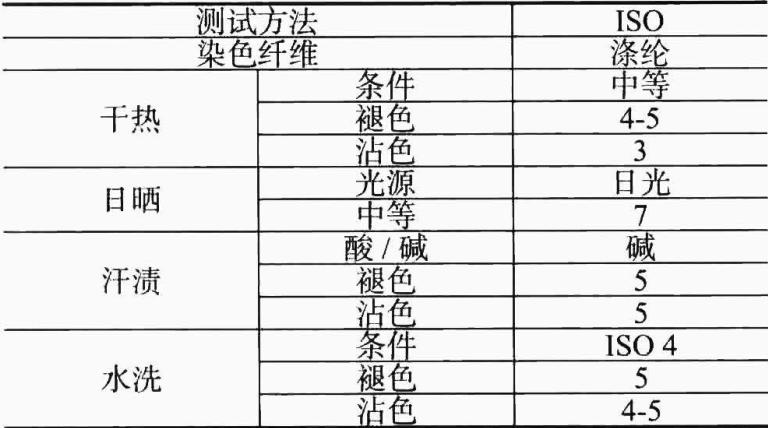 测试方法 ISO
染色纤维 涤纶
干热 条件 中等
褪色 4-5
沾色 3
日晒 光源 日光
中等 7
汗渍 酸 / 碱 碱
褪色 5
沾色 5
水洗 条件 ISO 4
褪色 5
沾色 4-5